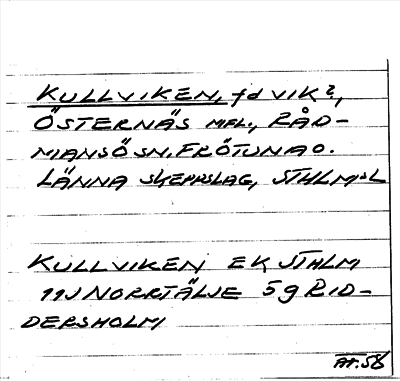 KULLVIKEN, fd VIK?,
ÖSTERNÄS MFL., RÅD-
MANSÖ SN. FRÖTUNA O.
LÄNNA SKEPPSLAG, STHLMSL
KULLVIKEN EK STHLM
11J NORRTÄLJE 5g RID-
DERSHOLM
AT.58